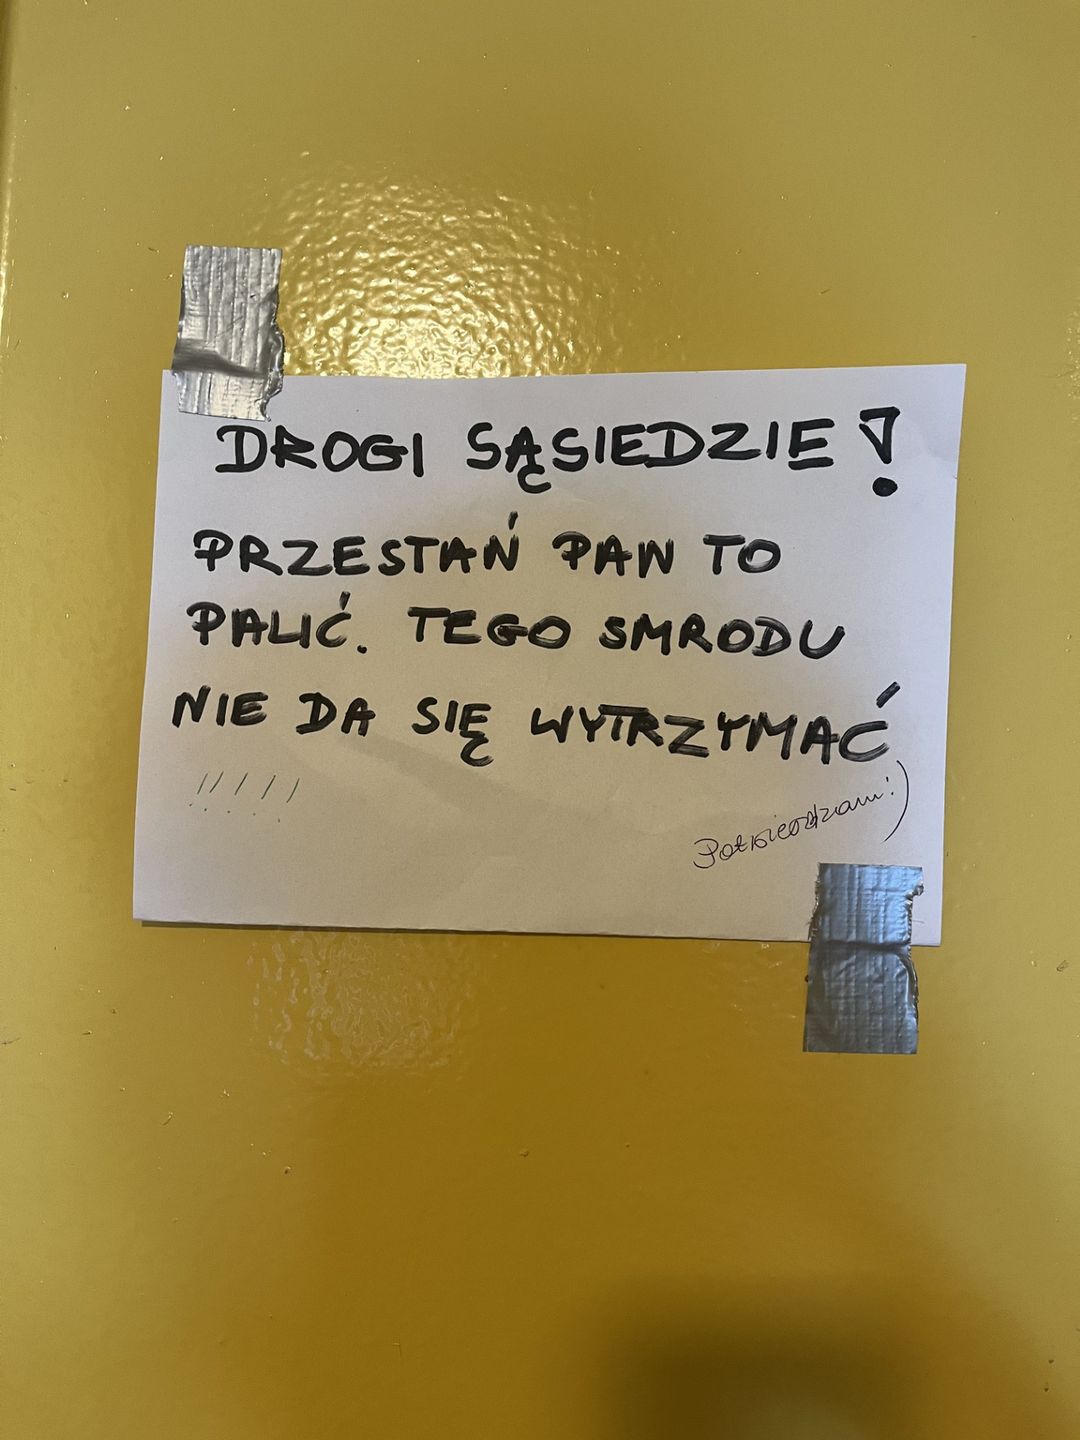 DROGI SĄSIEDZIE!
PRZESTAŃ PAN TO
PALIĆ. TEGO SMRODU
NIE DA SIĘ WYTRZYMAĆ
!!!!!
Potwierdzam!)